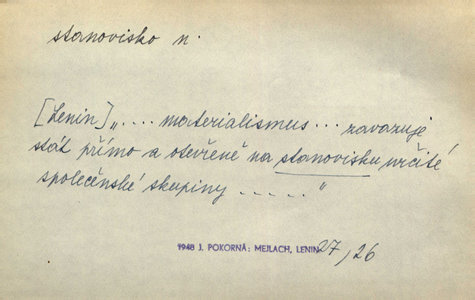 stanovisko n.
[Lenin] „.... materialismus ... zavazuje
stát přímo a otevřeně na stanovisku určité
společenské skupiny ....."
1948 J. POKORNÁ: MEJLACH, LENIN 27, 26